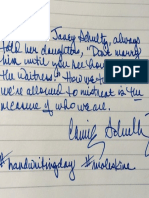 Janey Schultz always
told her daughters, "Don't marry
him until you see how
the waitress." How we
we're allowed to mistreat is the
measure of who we are.
Connie Schultz
#handwritingday #moleskine